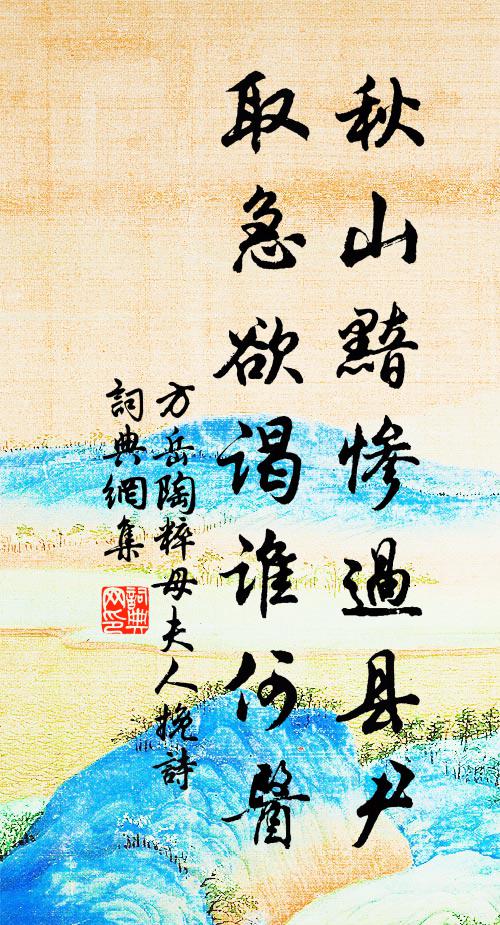 秋山黯惨過县尹
取急欲谒谁何醫
方岳陶粹母夫人挽詩
詞典網集
詞典网印